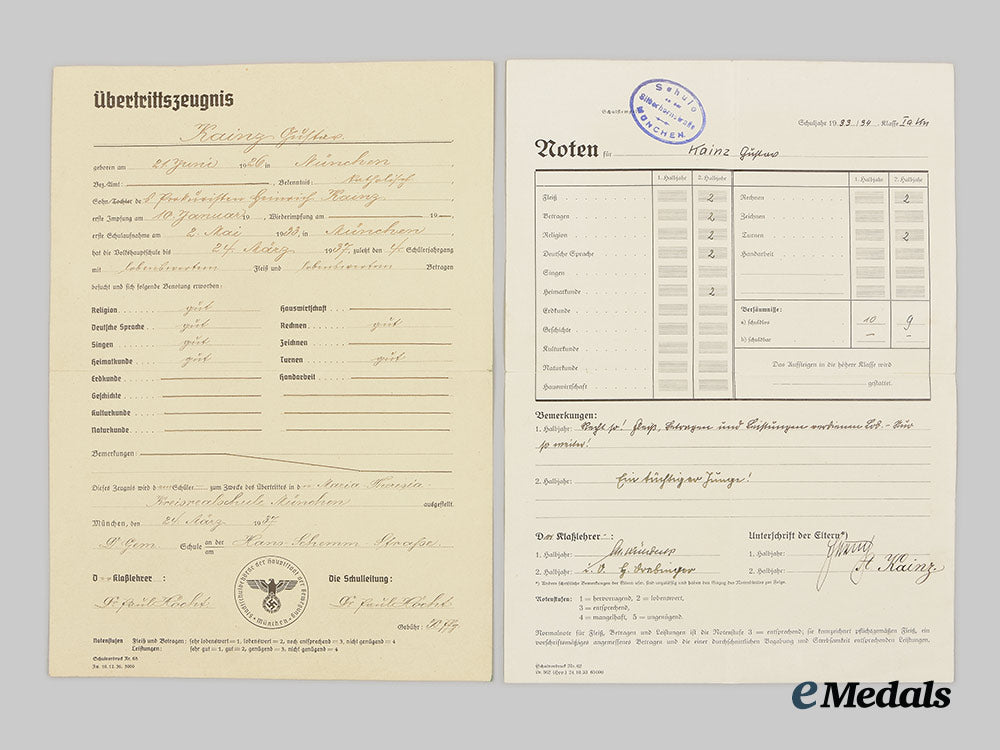 Übertrittszeugnis
Kainz Gustav
geboren am 21. Juni 1926 in München
Bez.Amt: , Bekenntnis: katholisch
Sohn-Tochter des Prokuristen Heinrich Kainz
erste Impfung am 10. Januar 19 , Wiederimpfung am 19 .
erste Schulaufnahme am 2. Mai 1933, in München
hat die Volkshauptschule bis 24. März 1937, zuletzt den 4. Schülerjahrgang
mit lobenswertem Fleiß und lobenswertem Betragen
besucht und sich folgende Benotung erworben:
Religion gut
Deutsche Sprache gut
Singen gut
Heimatkunde gut
Erdkunde
Geschichte
Kulturkunde
Naturkunde
Hauswirtschaft
Rechnen gut
Zeichnen
Turnen gut
Handarbeit
Bemerkungen:
Dieses Zeugnis wird dem Schüler zum Zwecke des Übertrittes in die Maria-Theresia-
Kreisrealschule München ausgestellt.
München, den 24. März 1937
D. Gem. Schule an der am Hans Schemm Straße
D Klaßlehrer : Die Schulleitung:
München
Gebühr:
Notenstufen Fleiß und Betragen: sehr lobenswert = 1, lobenswert = 2, noch entsprechend = 3, nicht genügend = 4
Leistungen: sehr gut = 1, gut = 2, genügend = 3, nicht genügend = 4
Schulvordruck Nr. 68
Schule
an der
Silberhornstraße
MÜNCHEN
Schuljahr 1933/34 Klasse
Noten für Kainz Gustav
1. Halbjahr 2. Halbjahr
Fleiß 2
Betragen 2
Religion 2
Deutsche Sprache 2
Singen
Heimatkunde 2
Erdkunde
Geschichte
Kulturkunde
Naturkunde
Hauswirtschaft
1. Halbjahr 2. Halbjahr
Rechnen 2
Zeichnen
Turnen 2
Handarbeit
Versäumnisse:
a) schuldlos 10 9
b) schuldbar — —
Das Aufsteigen in die höhere Klasse wird
gestattet.
Bemerkungen:
1. Halbjahr: Recht so! Fleiß, Betragen und Leistungen verdienen Lob. - Nur
so weiter!
2. Halbjahr: Ein tüchtiger Junge!
Der Klaßlehrer : Unterschrift der Eltern*)
1. Halbjahr: 1. Halbjahr:
2. Halbjahr: 2. Halbjahr: H. Kainz
Notenstufen: 1 = hervorragend, 2 = lobenswert,
3 = entsprechend,
4 = mangelhaft, 5 = ungenügend.
Normalnote für Fleiß, Betragen und Leistungen ist die Notenstufe 3 = entsprechend; sie kennzeichnet pflichtgemäßen Fleiß, ein
vorschriftsmäßiges angemessenes Betragen und die einer durchschnittlichen Begabung und Strebsamkeit entsprechenden Leistungen.
Schulvordruck Nr. 62
eMedals